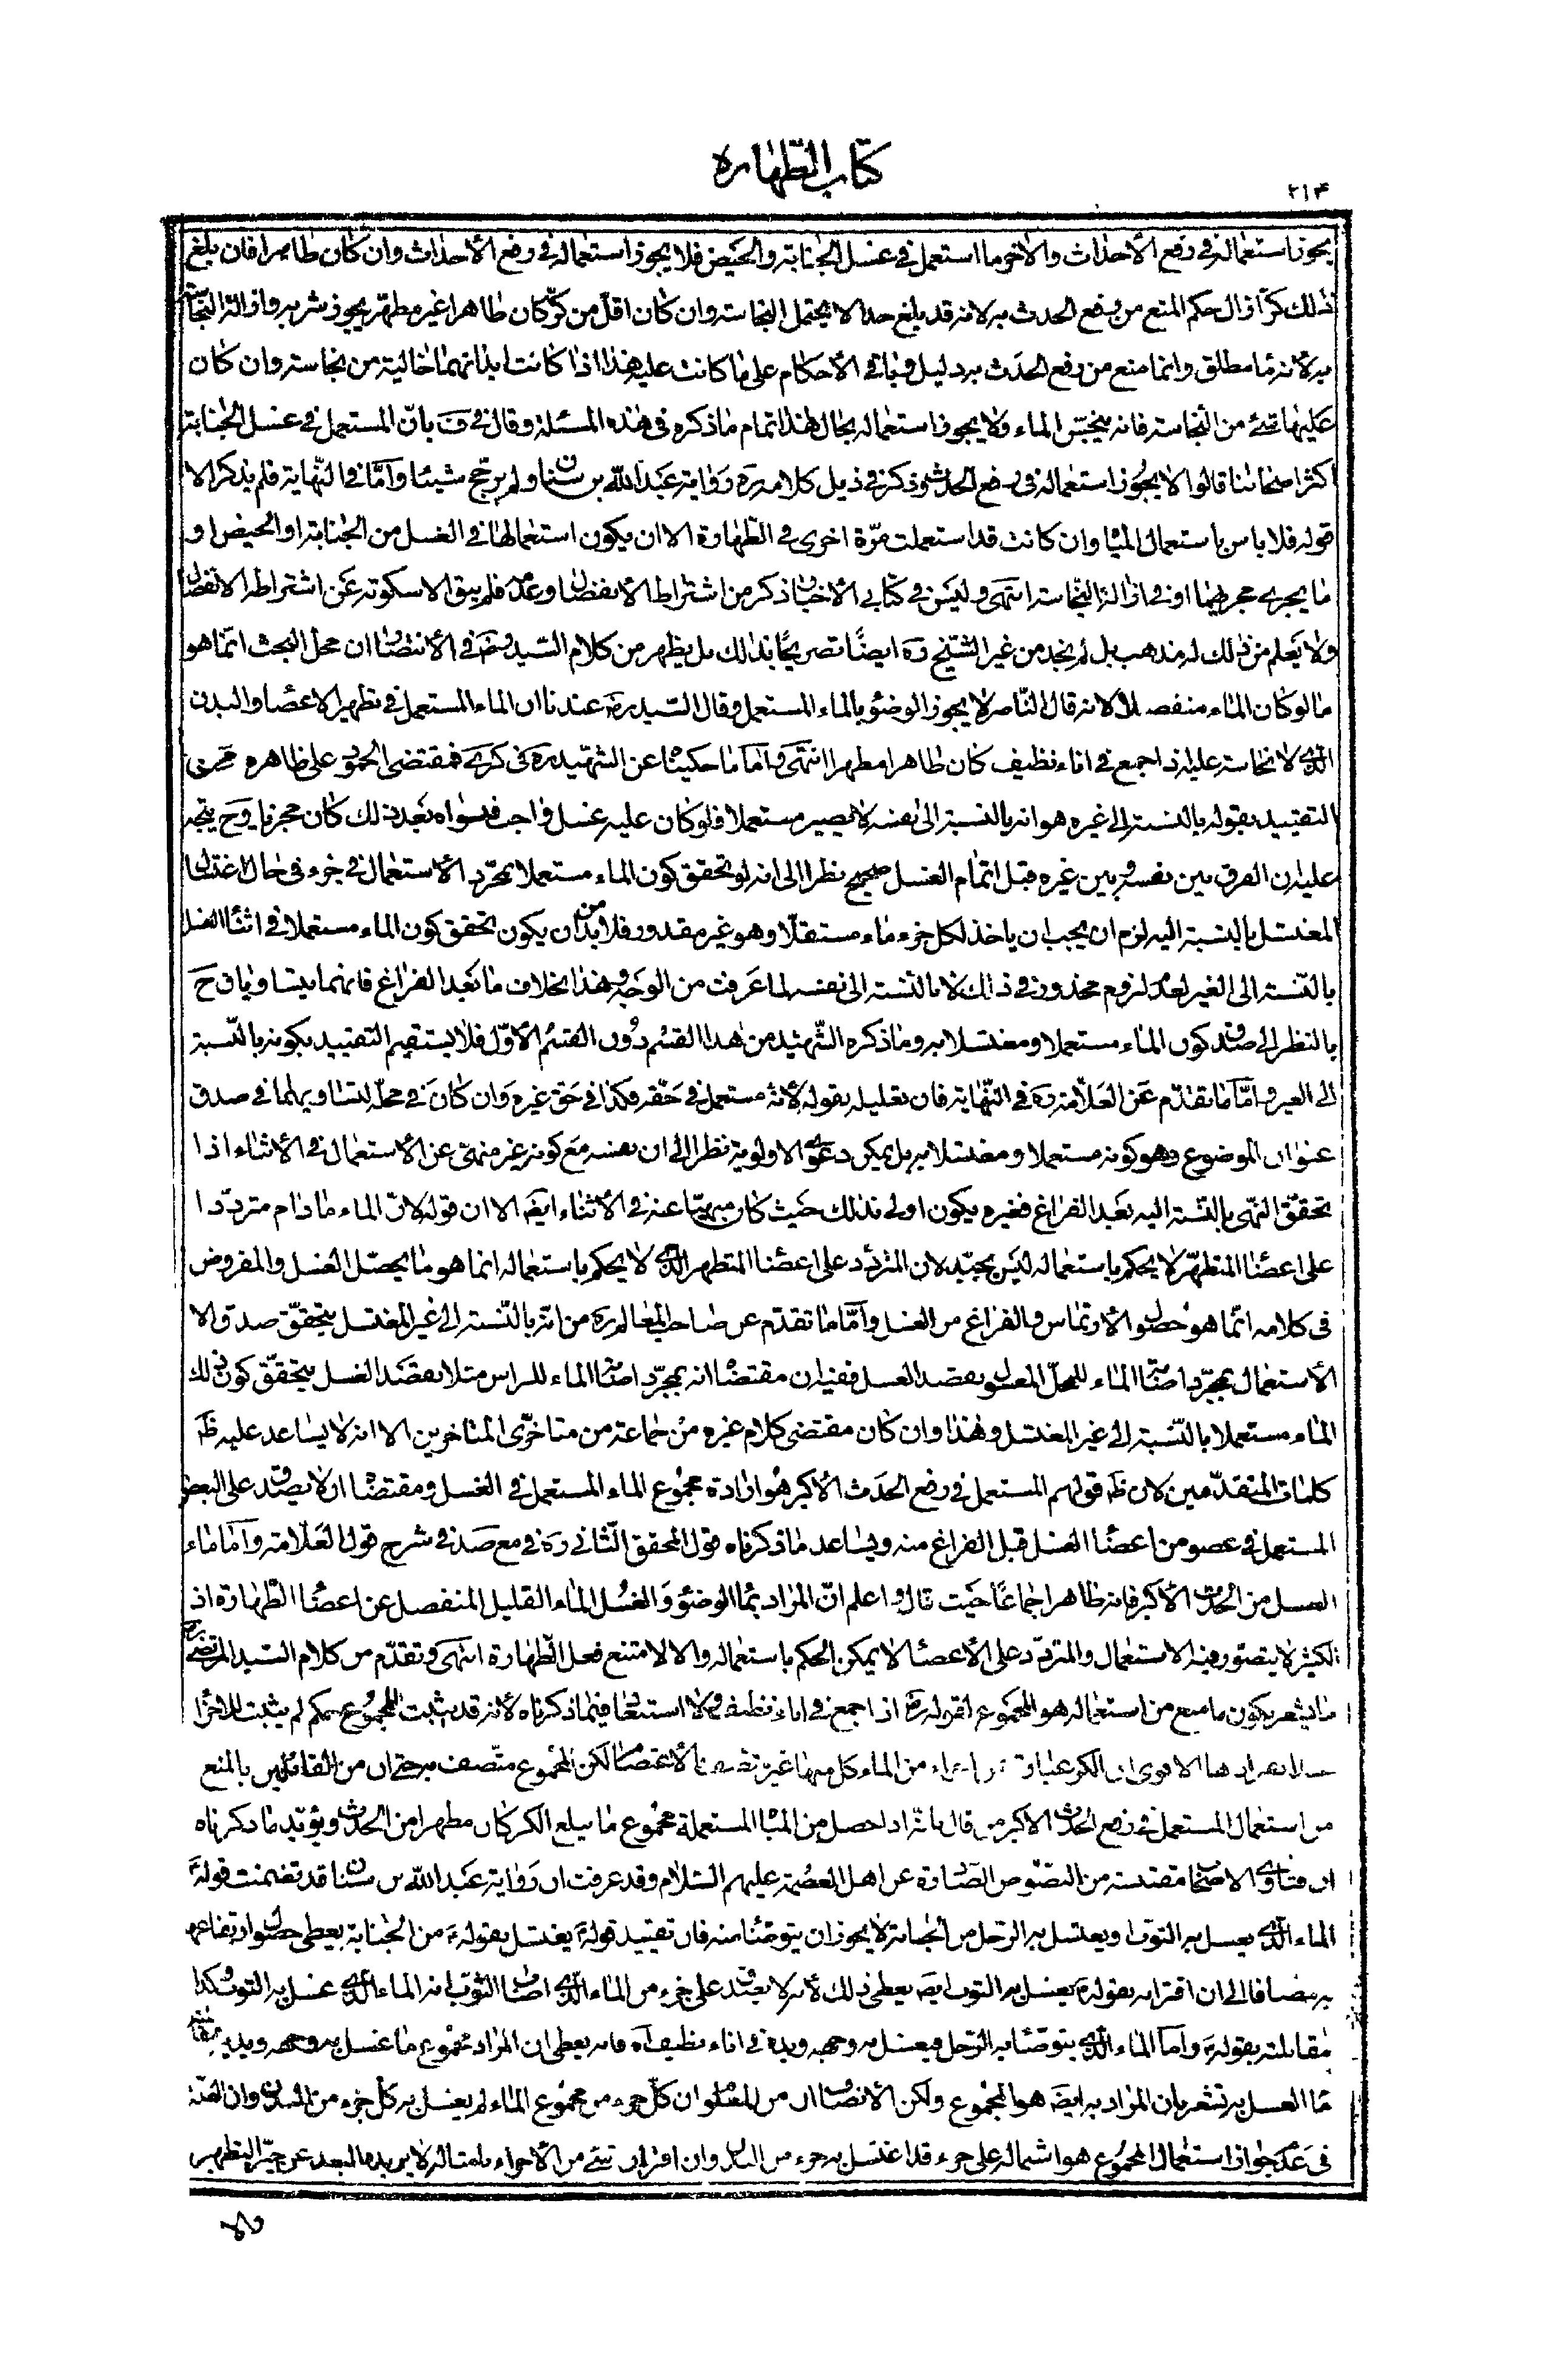 كتاب الطهارة
٢١۴
يجوز استعماله في رفع الأحداث والأخر ما استعمل في غسل الجنابة والحيض فلا يجوز استعماله في رفع الأحداث وان كان طاهرا فان بلغ
ذلك كرّا زال حكم المنع من رفع الحدث به لانه قد بلغ حدا لا يحتمل النجاسة وان كان اقل من كرّ كان طاهرا غير مطهّر يجوز شربه وازالة النجاسة
به لأنه ماء مطلق وانما منع من رفع الحدث به دليل وباقي الأحكام على ما كانت عليه هذا اذا كانت ابدانهما خالية من نجاسة وان كان
عليها شئ من النجاسة فانه ينجّس الماء ولا يجوز استعماله بحال هذا تمام ما ذكره في هذه المسئلة وقال في ف بانّ المستعمل في غسل الجنابة
اكثر اصحابنا قالوا لا يجوز استعماله في رفع الحدث وذكر في ذيل كلامه ره رواية عبد الله بن سنان ولم يرجّح شيئا وامّا في النّهاية فلم يذكر الا
قوله فلا باس باستعمال المياه وان كانت قد استعملت مرّة اخرى في الطهارة الا ان يكون استعمالها في الغسل من الجنابة او الحيض او
ما يجري مجريهما او في ازالة النجاسة انتهى وليس في كتابي الأخبار ذكر من اشتراط الأنفصال وعدمه فلم يبق الا سكوته عن اشتراط الانفصال
ولا يعلم من ذلك له مذهب بل لم نجد من غير الشيخ ره ايضًا تصريحًا بذلك بل يظهر من كلام السّيد المرتضى في الأنتصار ان محل البحث انما هو
ما لو كان الماء منفصلا لانه قال النّاصر لا يجوز الوضوء بالماء المستعمل وقال السّيد ره عندنا ان الماء المستعمل في تطهير الاعضاء والبدن
الذي لا نجاسة عليه اذا جمع في اناء نظيف كان طاهرا مطهرا انتهى وامّا ما حكيناه عن الشهيد ره في كرى فمقتضى الجمود على ظاهره
التقييد بقوله بالنسبة الى غيره هو انه بالنسبة الى نفسه لا يصير مستعملا فلو كان عليه غسل واجب فنواه بعد ذلك كان مجزيا وح يتجه
عليه ان الفرق بين نفسه وبين غيره قبل اتمام الغسل صحيح نظرا الى انه لو تحقق كون الماء مستعملا بمجرّد الأستعمال في جزء في حال الاغتسال
المغتسل بالنسبة اليه لزم ان يجب ان ياخذ لكل جزء ماء مستقلّا وهو غير مقدور فلا بدّ من ان يكون تحقق كون الماء مستعملا في اثناء الغسل
بالنّسبة الى الغير لعدم لزوم محذور في ذلك لا بالنّسبة الى نفسه لما عرفت من الوجه وهذا بخلاف ما بعد الفراغ فانهما يتساويان ح
بالنظر الى صدق كون الماء مستعملا ومغتسلا به وما ذكره الشّهيد من هذا القسم دون القسم الأوّل فلا يستقيم التقييد بكونه بالنّسبة
الى الغير وامّا ما تقدّم عن العلّامة ره في النّهاية فان تعليله بقوله لأنه مستعمل في حقّه فكذا في حق غيره وان كان في محلّه لتساويهما في صدق
عنوان الموضوع وهو كونه مستعملا ومغتسلا به بل يمكن دعوى الاولوية نظرا الى ان نفسه مع كونه غير منهىّ عن الأستعمال في الأثناء اذا
تحقق النّهى بالنّسبة اليه بعد الفراغ فغيره يكون اولى بذلك حيث كان منهيّا عنه في الأثناء ايضا الا ان قوله لانّ الماء ما دام متردّدا
على اعضاء المتطهّر لا يحكم باستعماله ليس بجيّد لان المتردّد على اعضاء المتطهر الذي لا يحكم باستعماله انما هو ما يحصّل الغسل والمفروض
في كلامه انّما هو حصول الأرتماس والفراغ من الغسل وامّا ما تقدّم عن صاحب المعالم ره من انّه بالنّسبة الى غير المغتسل يتحقّق صدق الا
الأستعمال بمجرّد اصابة الماء للمحلّ المغسول بقصد الغسل ففيه ان مقتضاه انه بمجرّد اصابة الماء للراس مثلا بقصد الغسل يتحقّق كون ذلك
الماء مستعملا بالنّسبة الى غير المغتسل وهذا وان كان مقتضى كلام غيره من جماعة من متاخرى المتاخرين الا انه لا يساعد عليه ظ
كلمات المتقدّمين لان ظ قولهم المستعمل في رفع الحدث الأكبر هو ارادة مجموع الماء المستعمل في الغسل ومقتضاه ان لا يصدق على البعض
المستعمل في عضو من اعضاء الغسل قبل الفراغ منه ويساعد ما ذكرناه قول المحقق الثّاني ره في مع صد في شرح قول العلّامة وامّا ماء
الغسل من الحدث الأكبر فانه طاهر اجماعًا حيث قال واعلم انّ المراد بماء الوضوء والغسل الماء القليل المنفصل عن اعضاء الطّهارة اذ
الكثير لا يتصوّر فيه الاستعمال والمتردّد على الأعضاء لا يمكن الحكم باستعماله والا لامتنع فعل الطّهارة انتهى وتقدّم من كلام السّيد المرتضى ره
ما يشعر بكون ما منع من استعماله هو المجموع لقوله ره اذا جمع في اناء نظيف ولا استبعاد فيما ذكرناه لأنه قد يثبت للمجموع حكم لم يثبت للاجزاء
حال انفرادها الا ترى ان الكر عبارة من الماء كل منها غير لكن المجموع متّصف به حتى ان من القائلين بالمنع
من استعمال المستعمل في رفع الحدث الاكبر من قال بانّه اذا حصل من المياه المستعملة مجموع ما يبلغ الكر كان مطهرا من الحدث ويؤيّد ما ذكرناه
ان فتاوى الاصحاب مقتبسة من النصوص الصّادرة عن اهل العصمة عليهم السّلام وقد عرفت ان رواية عبد الله بن سنان قد تضمنت قوله ع
الماء الذي يغسل به الثوب او يغتسل به الرّجل من الجنابة لا يجوز ان يتوضّأ منه فان تقييد قوله ع يغتسل بقوله ع من الجنابة يعطى حصول ارتفاعها
به مضافا الى ان اقترانه بقوله ع يغسل به الثوب ايضا يعطى ذلك لأنه لا يصدق على جزء من الماء الذي اصاب الثوب انه الماء الذي غسل به الثوب وكذا
مقابلته بقوله ع وامّا الماء الذي يتوضّأ به الرّجل فيغسل به وجهه ويده في اناء نظيف آه فانه يعطى ان المراد مجموع ما غسل به وجهه ويديه
ماء الغسل به تشعر بان المراد به ايضا هو المجموع ولكن الأنصاف ان من المعلوم ان كلّ جزء من مجموع الماء لم يغسل به كلّ جزء من البدن وان العلّة
في عدم جواز استعمال المجموع هو اشتماله على جزء قد اغتسل به جزء من البدن وان اقتران شئ من الأجزاء بامثاله لا يزيده الا البعد عن حيّز التطهير
والا